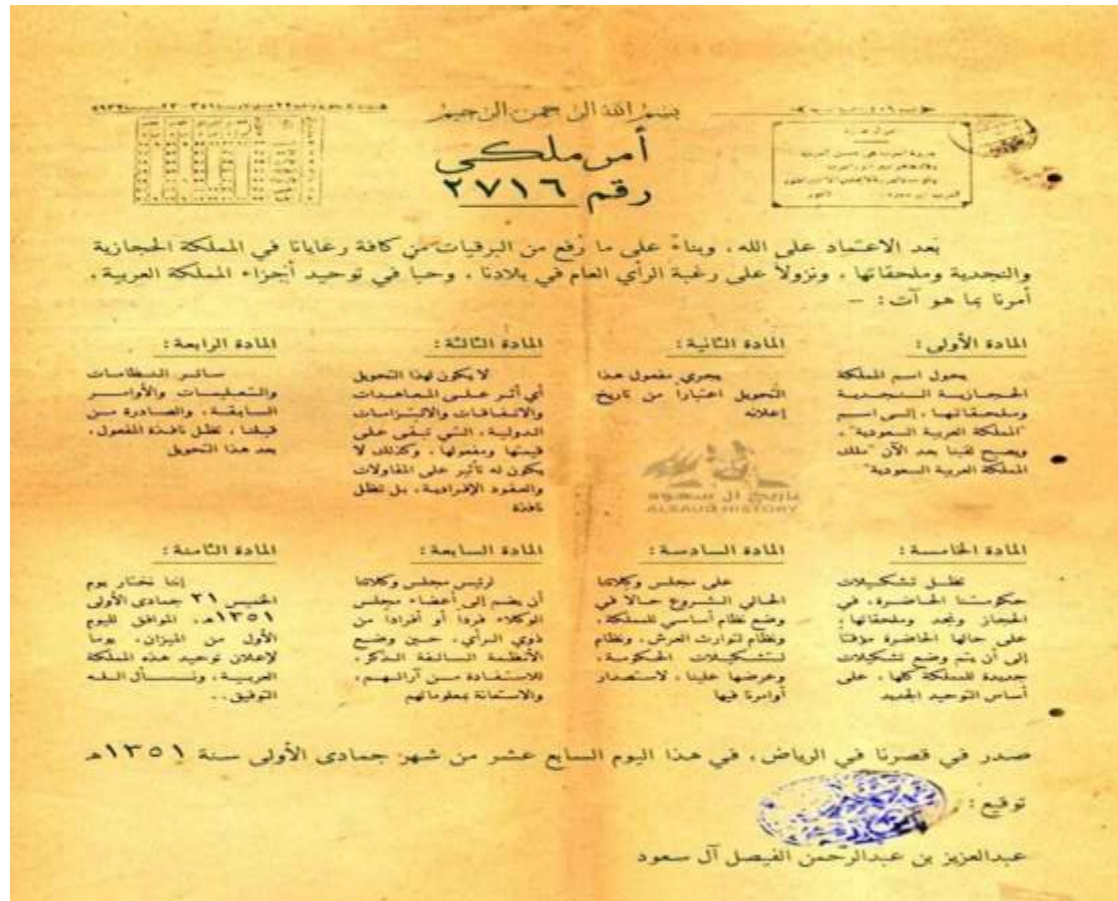 بسم الله الرحمن الرحيم
أمر ملكي
رقم ٢٧١٦
بعد الاعتماد على الله، وبناءً على ما رُفع من البرقيات من كافة رعايانا في المملكة الحجازية
والنجدية وملحقاتها، ونزولاً على رغبة الرأي العام في بلادنا، وحبا في توحيد أجزاء المملكة العربية،
أمرنا بما هو آت: -
المادة الأولى:
يحول اسم المملكة
الحجازية النجدية
وملحقاتها، إلى اسم
"المملكة العربية السعودية"،
ويصبح لقبنا بعد الآن "ملك
المملكة العربية السعودية"
المادة الثانية:
يجري مفعول هذا
التحويل اعتبارا من تاريخ
إعلانه
المادة الثالثة:
لا يكون لهذا التحويل
أي أثر على المعاهدات
والاتفاقات والالتزامات
الدولية، التي تبقى على
قيمتها ومفعولها، وكذلك لا
يكون له تأثير على المقاولات
والعقود الإفرادية، بل تظل
نافذة
المادة الرابعة:
سائر النظامات
والتعليمات والأوامر
السابقة، والصادرة من
قبلنا، تظل نافذة المفعول،
بعد هذا التحويل
تاريخ آل سعود
ALSAUD HISTORY
المادة الخامسة:
تظل تشكيلات
حكومتنا الحاضرة، في
الحجاز ونجد وملحقاتها،
على حالها الحاضرة مؤقتاً
إلى أن يتم وضع تشكيلات
جديدة للمملكة كلها، على
أساس التوحيد الجديد
المادة السادسة:
على مجلس وكلائنا
الحالي الشروع حالاً في
وضع نظام أساسي للمملكة،
ونظام لتوارث العرش، ونظام
لتشكيلات الحكومة،
وعرضها علينا، لاستصدار
أوامرنا فيها
المادة السابعة:
لرئيس مجلس وكلائنا
أن يضم إلى أعضاء مجلس
الوكلاء فرداً أو أفراداً من
ذوي الرأي، حين وضع
الأنظمة السالفة الذكر،
للاستفادة من آرائهم،
والاستعانة بمعلوماتهم
المادة الثامنة:
إننا نختار يوم
الخميس ٢١ جمادى الأولى
١٣٥١هـ، الموافق لليوم
الأول من الميزان، يوما
لإعلان توحيد هذه المملكة
العربية، ونسأل الله
التوفيق..
صدر في قصرنا في الرياض، في هذا اليوم السابع عشر من شهر جمادى الأولى سنة ١٣٥١هـ
توقيع:
عبدالعزيز بن عبدالرحمن الفيصل آل سعود